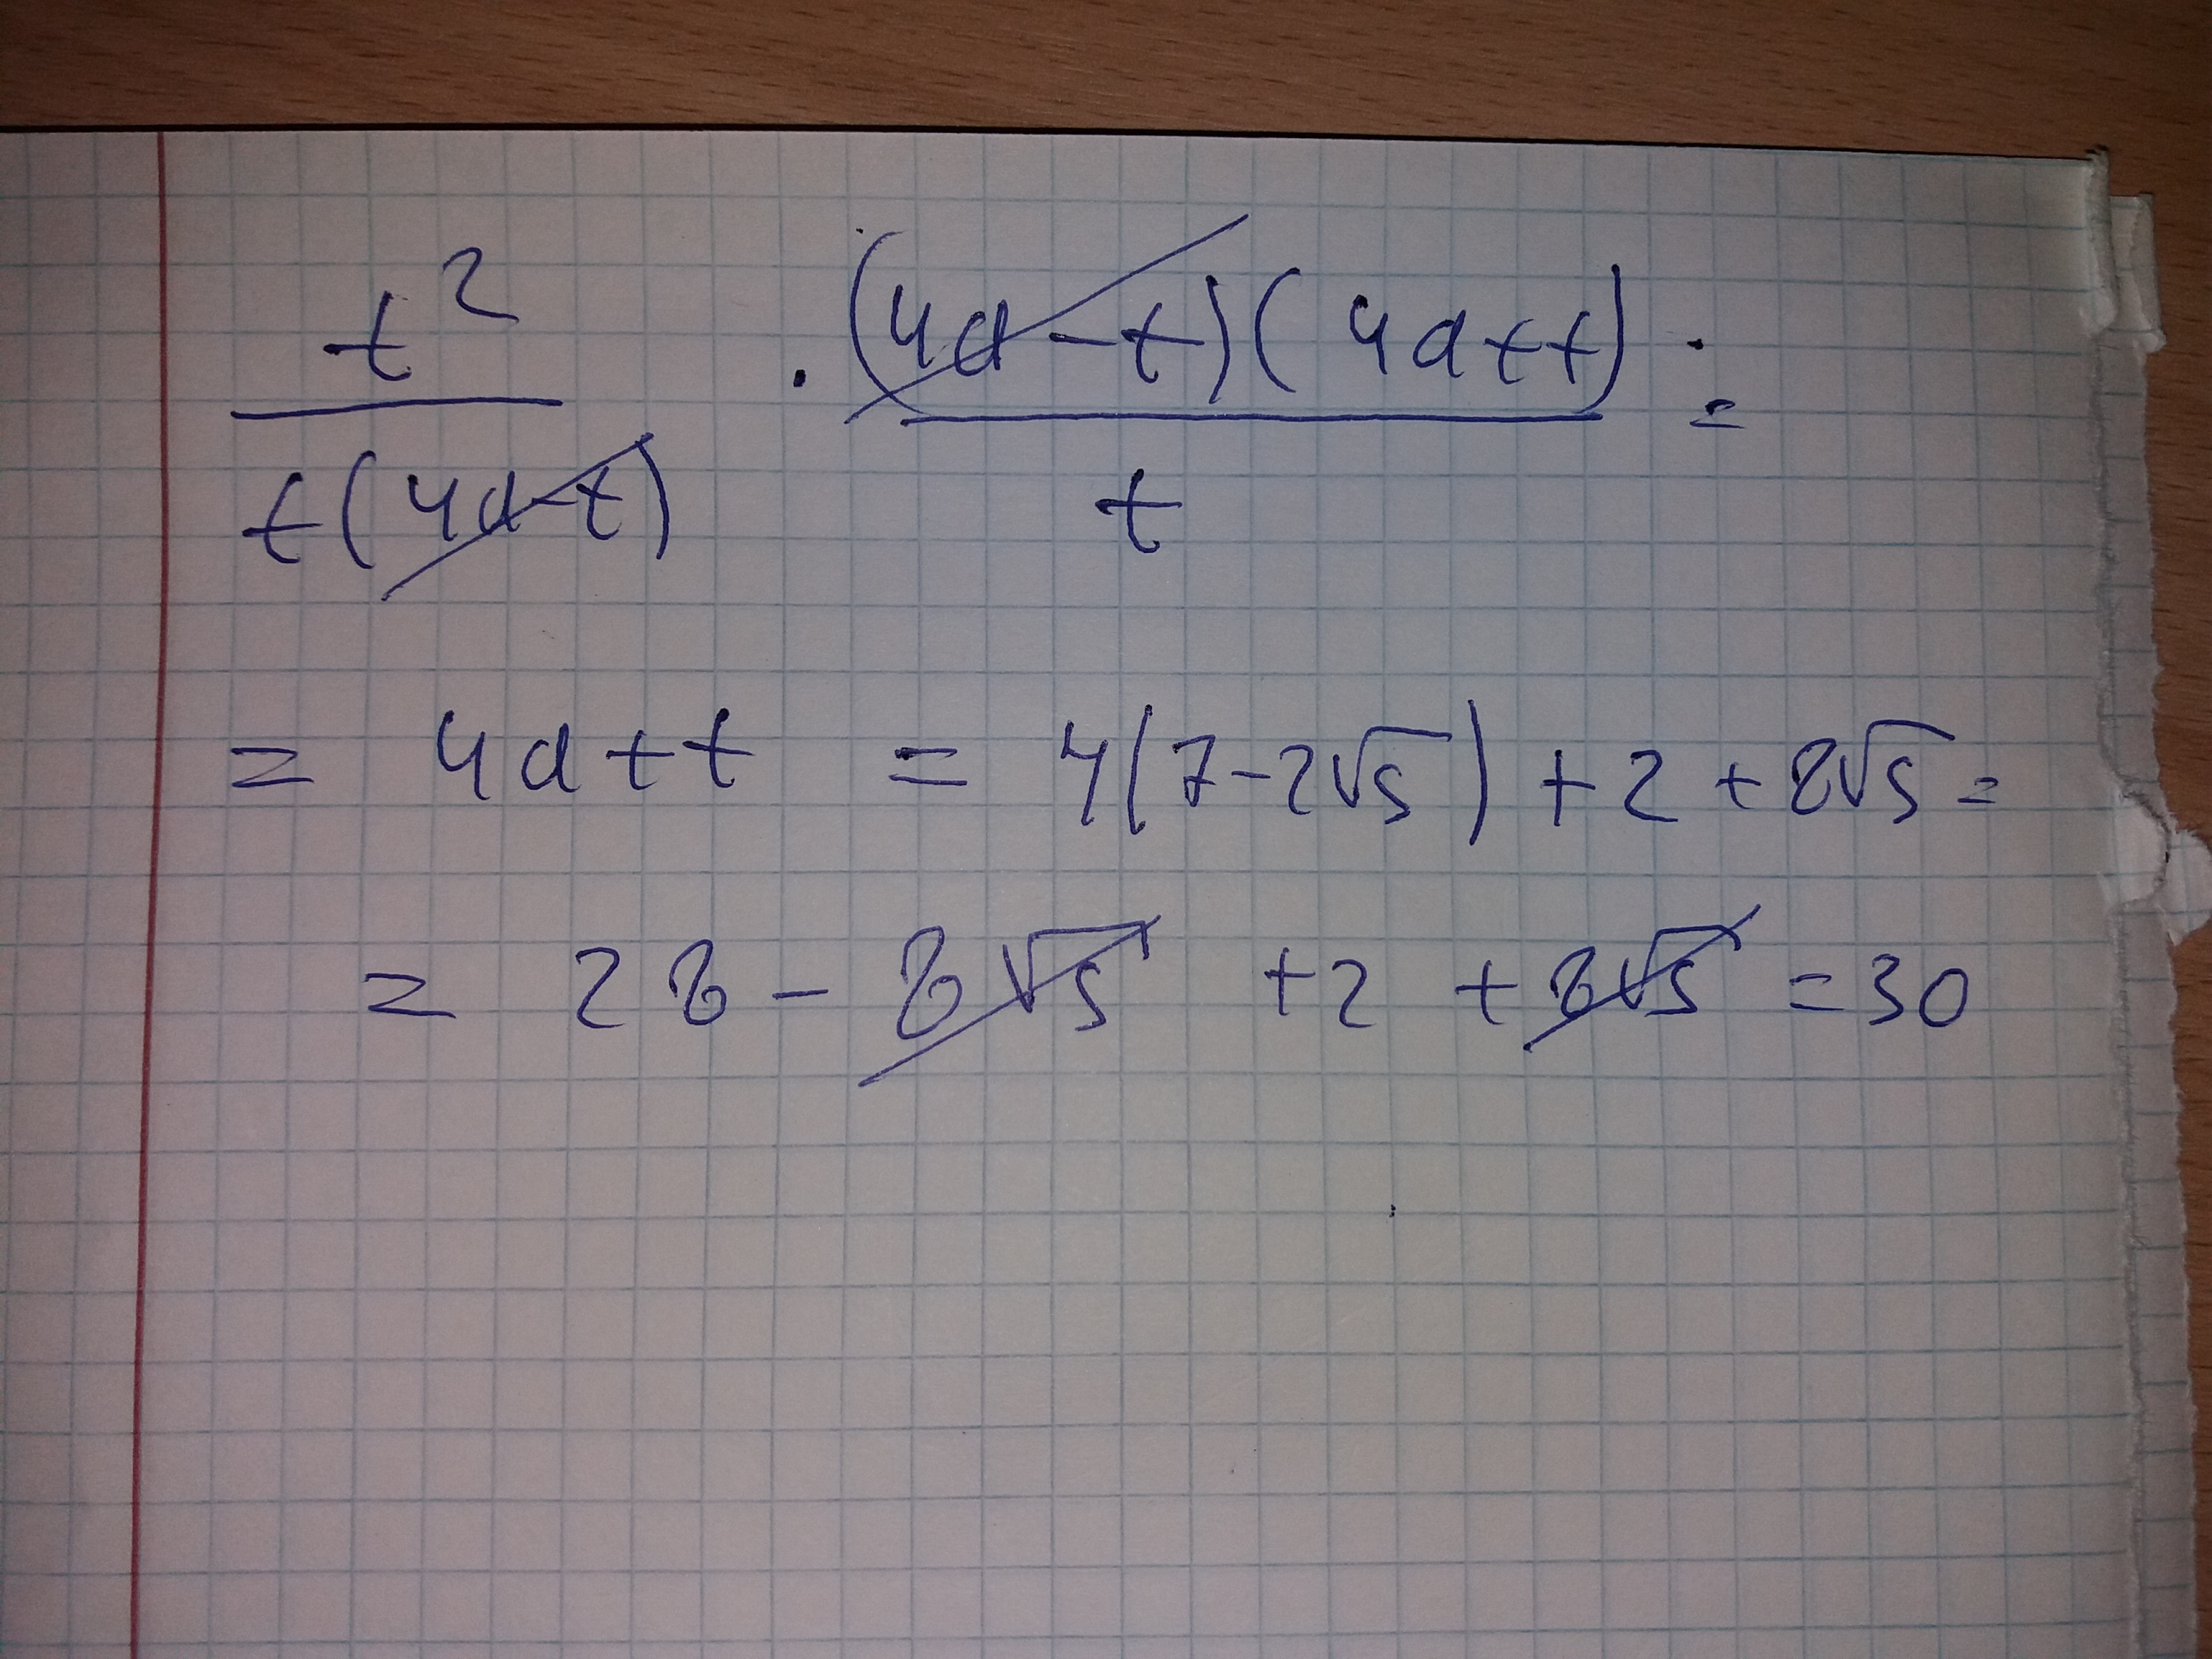 t² / t(4a-t) · (4a-t)(4a+t) / t =
= 4a+t = 4(7-2√5)+2+8√5=
= 28-8√5 +2 +8√5 =30